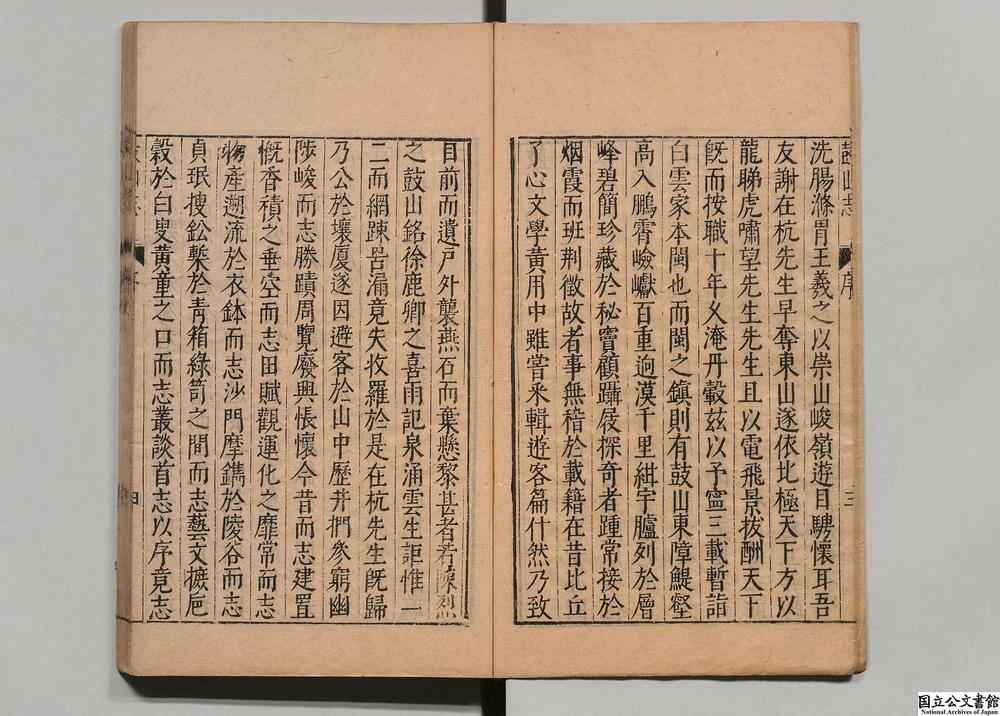 鼓山志
序
三
洗腸滌胃王羲之以崇山峻嶺遊目騁懷耳吾
友謝在杭先生早奪東山遂依北極天下方以
龍睇虎嘯望先生先生且以電飛景拔酬天下
既而按職十年久淹丹轂茲以予寧三載暫詣
白雲家本閩也而閩之鎮則有鼓山東障鯷壑
高入鵬霄嶮巘百重迥漠千里紺宇臚列於層
峰碧簡珍藏於秘竇顧躡屐探奇者踵常接於
烟霞而班荆徵故者事無稽於載籍在昔比丘
了心文學黃用中雖嘗采輯遊客篇什然乃致
目前而遺戶外襲燕石而棄懸黎甚者若陳烈
之鼓山銘徐鹿卿之喜雨記泉涌雲生詎惟一
二而網踈罟漏竟失收羅於是在杭先生既歸
乃公於壤厦遂因避客於山中歷井捫參窮幽
陟峻而志勝蹟周覽廢興悵懷今昔而志建置
慨香積之垂空而志田賦觀運化之靡常而志
物產遡流於衣鉢而志沙門摩鐫於陵谷而志
貞珉搜鈆槧於青箱綠笥之間而志藝文摭卮
穀於白叟黃童之口而志叢談首志以序竟志
四
国立公文書館
National Archives of Japan